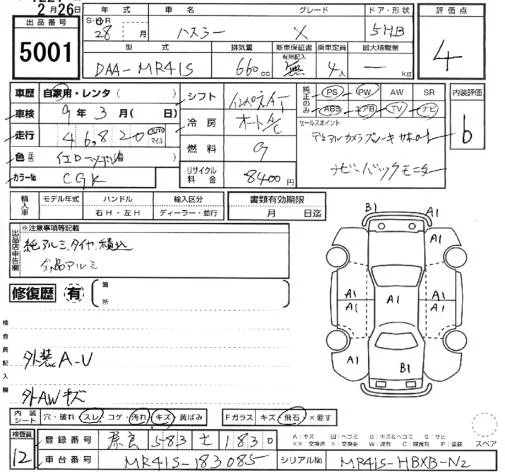 2月26日
出品番号
5001
年式 車名 グレード ドア・形状
28年 月 ハスラー X 5HB
型式 排気量 新車保証書 有無記入 乗車定員 最大積載量
DAA-MR41S 660cc 無 4人 — kg
評価点
4
車歴 自家用・レンタ( )
車検 9年3月( )
走行 46,820 km マイル
色
カラーNo. CGK
シフト インパネAT
冷房 オートA/C
燃料 g
リサイクル料金 8400円
純正のみ PS PW AW SR
ABS エアB TV ナビ
セールスポイント
デュアルカメラブレーキサポート
ナビ・バックモニター
内装評価
b
輸入車 モデル年式 ハンドル 輸入区分
年 右H・左H ディーラー・並行
書類有効期限
月 日迄
出品店申告欄
※注意事項等記載
純アルミ、タイヤ積込
社品アルミ
修復歴 有 箇所
検査員記入欄
外装A-U
外AWキズ
B1 A1
A1
A1 A1 A1
B1
内装シート 穴・破れ スレ コゲ・汚れ キズ 黄ばみ
Fガラス キズ 飛石 ×要す
検査員
12
登録番号 奈良 583 せ 1830
車台番号 MR41S-183085
シリアルNo. MR41S-HBXB-N2
スペア